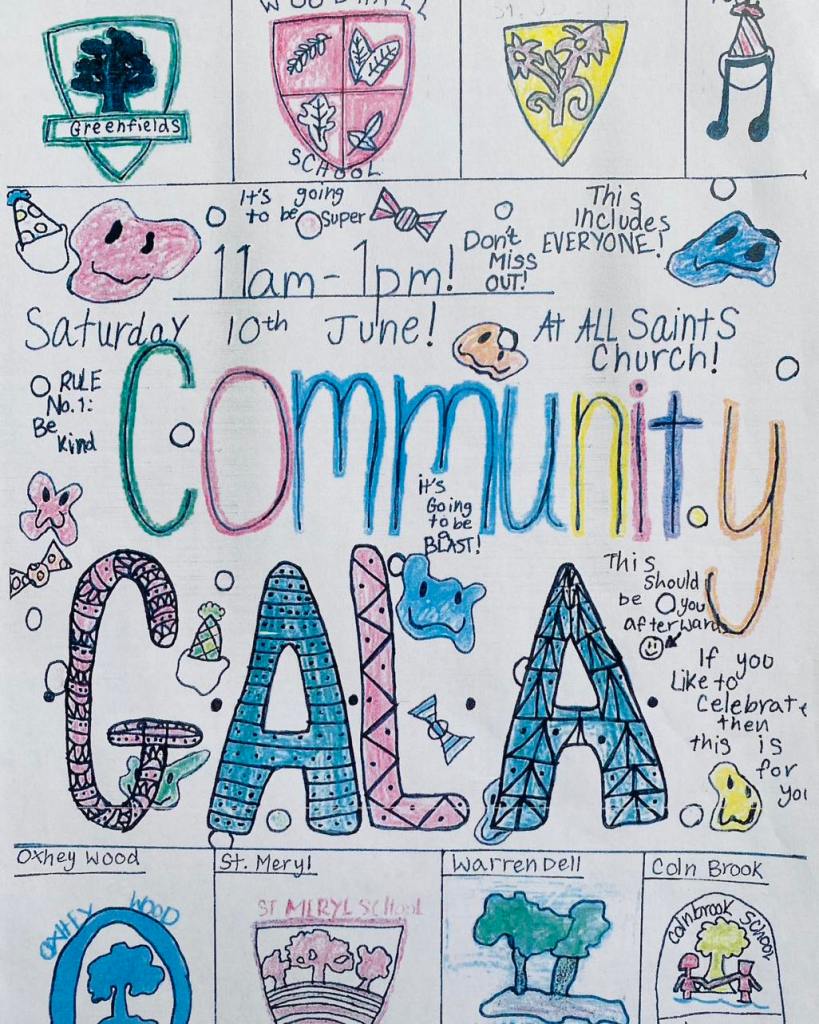 WOODHALL
Greenfields
SCHOOL
It's going
to be Super
11am-1pm!
Don't
Miss
OUT!
This
Includes
EVERYONE!
Saturday 10th June!
At All Saints
Church!
RULE
No.1:
Be
Kind
Community
it's
Going
to be
a
BLAST!
GALA
This
should
be you
afterwards
If you
Like to
celebrate
then
this is
for
you
Oxhey Wood
St. Meryl
Warren Dell
Coln Brook
OXHEY WOOD
ST MERYL SCHOOL
Colnbrook School